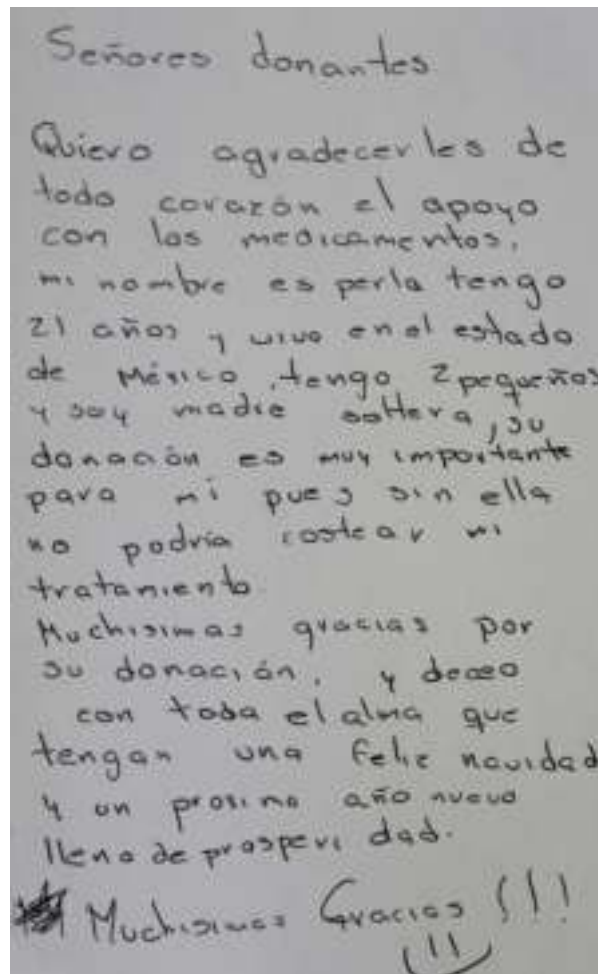 Señores donantes
Quiero agradecerles de
todo corazón el apoyo
con los medicamentos,
mi nombre es perla tengo
21 años y vivo en el estado
de México, tengo 2 pequeños
y soy madre soltera, su
donación es muy importante
para mi pues sin ella
no podría costear mi
tratamiento.
Muchisimas gracias por
su donación, y deseo
con toda el alma que
tengan una feliz navidad
y un prosimo año nuevo
lleno de prosperidad.
Muchisimas Gracias !!!